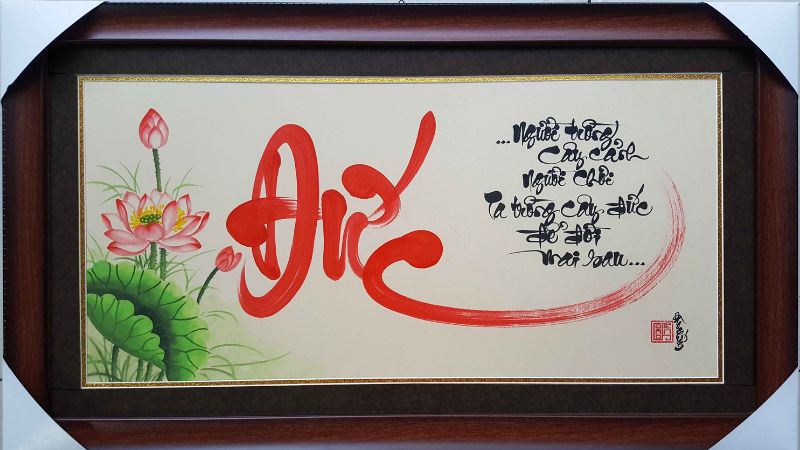 Đức
...Người trồng
cây cảnh
người chơi
Ta trồng cây đức
để đời
mai sau...